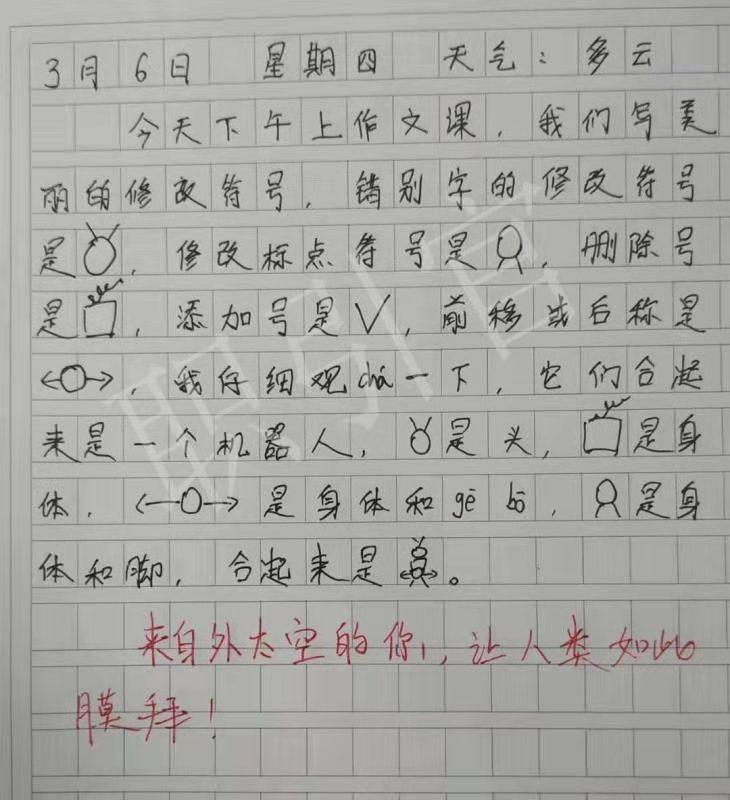 3月6日 星期四 天气：多云
今天下午上作文课，我们写美
丽的修改符号，错别字的修改符号
是，修改标点符号是，删除号
是，添加号是∨，前移或后称是
←○→，我仔细观chá一下，它们合起
来是一个机器人，是头，是身
体，←○→是身体和gē bō，是身
体和脚，合起来是。
来自外太空的你，让人类如此
膜拜！
职引官